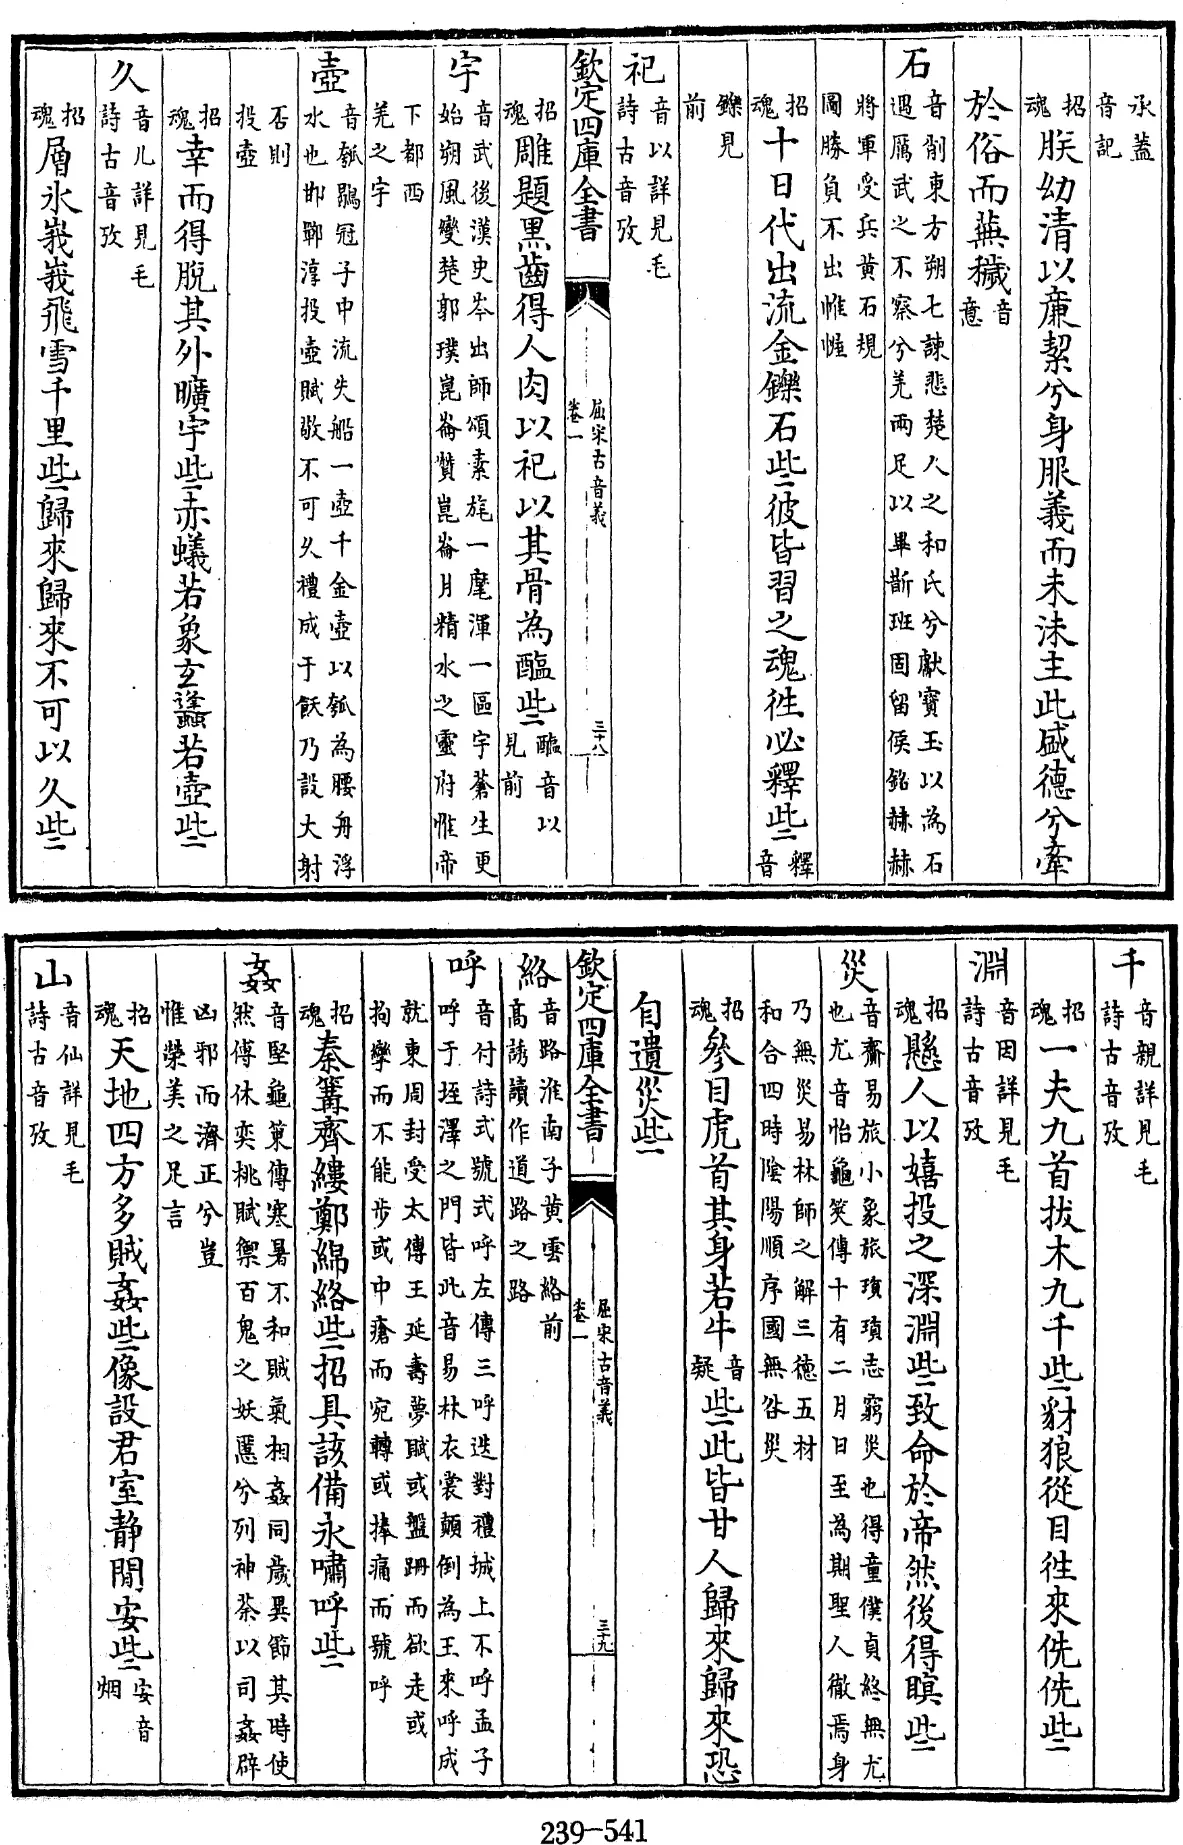 承蓋
音記
招魂朕幼清以廉絜兮身服義而未沬主此盛德兮牽
於俗而蕪穢音意
石音削東方朔七諫悲楚人之和氏兮獻寶玉以為石
遇厲武之不察兮羌兩足以畢斮班固留侯銘赫赫
將軍受兵黃石規
圖勝負不出帷幄
招魂十日代出流金鑠石些彼皆習之魂徃必釋些釋音
鑠見
前
祀音以詳見毛
詩古音攷
欽定四庫全書
屈宋古音義
卷一
三十八
招魂雕題黑齒得人肉以祀以其骨為醢些醢音以見前
宇音武後漢史岑出師頌素旄一麾渾一區宇蒼生更
始朔風變楚郭璞崑崙贊崑崙月精水之靈府惟帝
下都西
羌之宇
壺音瓠鶡冠子中流失船一壺千金壺以瓠為腰舟浮
水也邯鄲淳投壺賦敬不可久禮成于飫乃設大射
否則
投壺
招魂幸而得脫其外曠宇些赤蟻若象玄蠭若壺些
久音几詳見毛
詩古音攷
招魂層氷峩峩飛雪千里些歸來歸來不可以久些
千音親詳見毛
詩古音攷
招魂一夫九首拔木九千些豺狼從目徃來侁侁些
淵音因詳見毛
詩古音攷
招魂懸人以嬉投之深淵些致命於帝然後得瞑些
災音齋易旅小象旅瑣瑣志窮災也得童僕貞終無尤
也尤音怡龜筴傳十有二月日至為期聖人徹焉身
乃無災易林師之解三德五材
和合四時陰陽順序國無咎災
招魂參目虎首其身若牛音疑些此皆甘人歸來歸來恐
自遺災些
欽定四庫全書
屈宋古音義
卷一
三十九
絡音路淮南子黃雲絡前
高誘讀作道路之路
呼音付詩式號式呼左傳三呼迭對禮城上不呼孟子
呼于垤澤之門皆此音易林衣裳顛倒為王來呼成
就東周封受太傅王延壽夢賦或盤跚而欲走或
拘攣而不能步或中瘡而宛轉或捧痛而號呼
招魂秦篝齊縷鄭綿絡些招具該備永嘯呼些
姦音堅龜策傳寒暑不和賊氣相姦同歲異節其時使
然傅休奕桃賦禦百鬼之妖慝兮列神荼以司姦辟
凶邪而濟正兮豈
惟榮美之足言
招魂天地四方多賊姦些像設君室静閒安些安音烟
山音仙詳見毛
詩古音攷
239-541